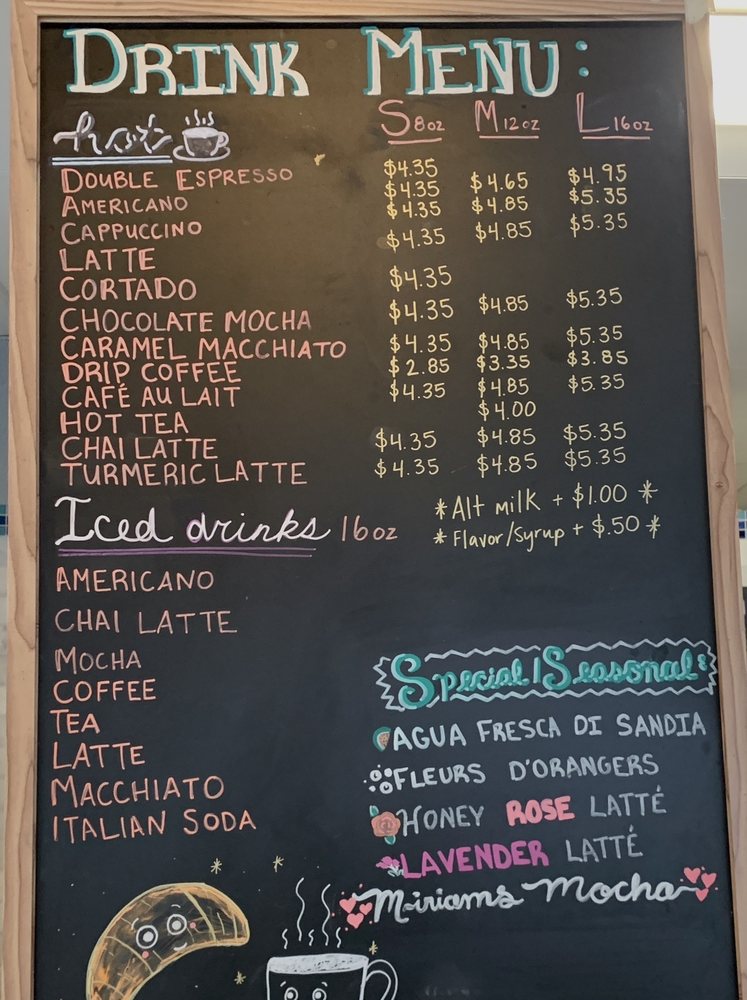 DRINK MENU:
hot S 8oz M 12oz L 16oz
DOUBLE ESPRESSO $4.35
AMERICANO $4.35 $4.65 $4.95
CAPPUCCINO $4.35 $4.85 $5.35
LATTE $4.35 $4.85 $5.35
CORTADO $4.35
CHOCOLATE MOCHA $4.35 $4.85 $5.35
CARAMEL MACCHIATO $4.35 $4.85 $5.35
DRIP COFFEE $2.85 $3.35 $3.85
CAFÉ AU LAIT $4.35 $4.85 $5.35
HOT TEA $4.00
CHAI LATTE $4.35 $4.85 $5.35
TURMERIC LATTE $4.35 $4.85 $5.35
*Alt milk + $1.00 *
*Flavor/Syrup + $.50*
Iced drinks 16oz
AMERICANO
CHAI LATTE
MOCHA
COFFEE
TEA
LATTE
MACCHIATO
ITALIAN SODA
Special/Seasonal:
AGUA FRESCA DI SANDIA
FLEURS D'ORANGERS
HONEY ROSE LATTÉ
LAVENDER LATTÉ
Miriams Mocha